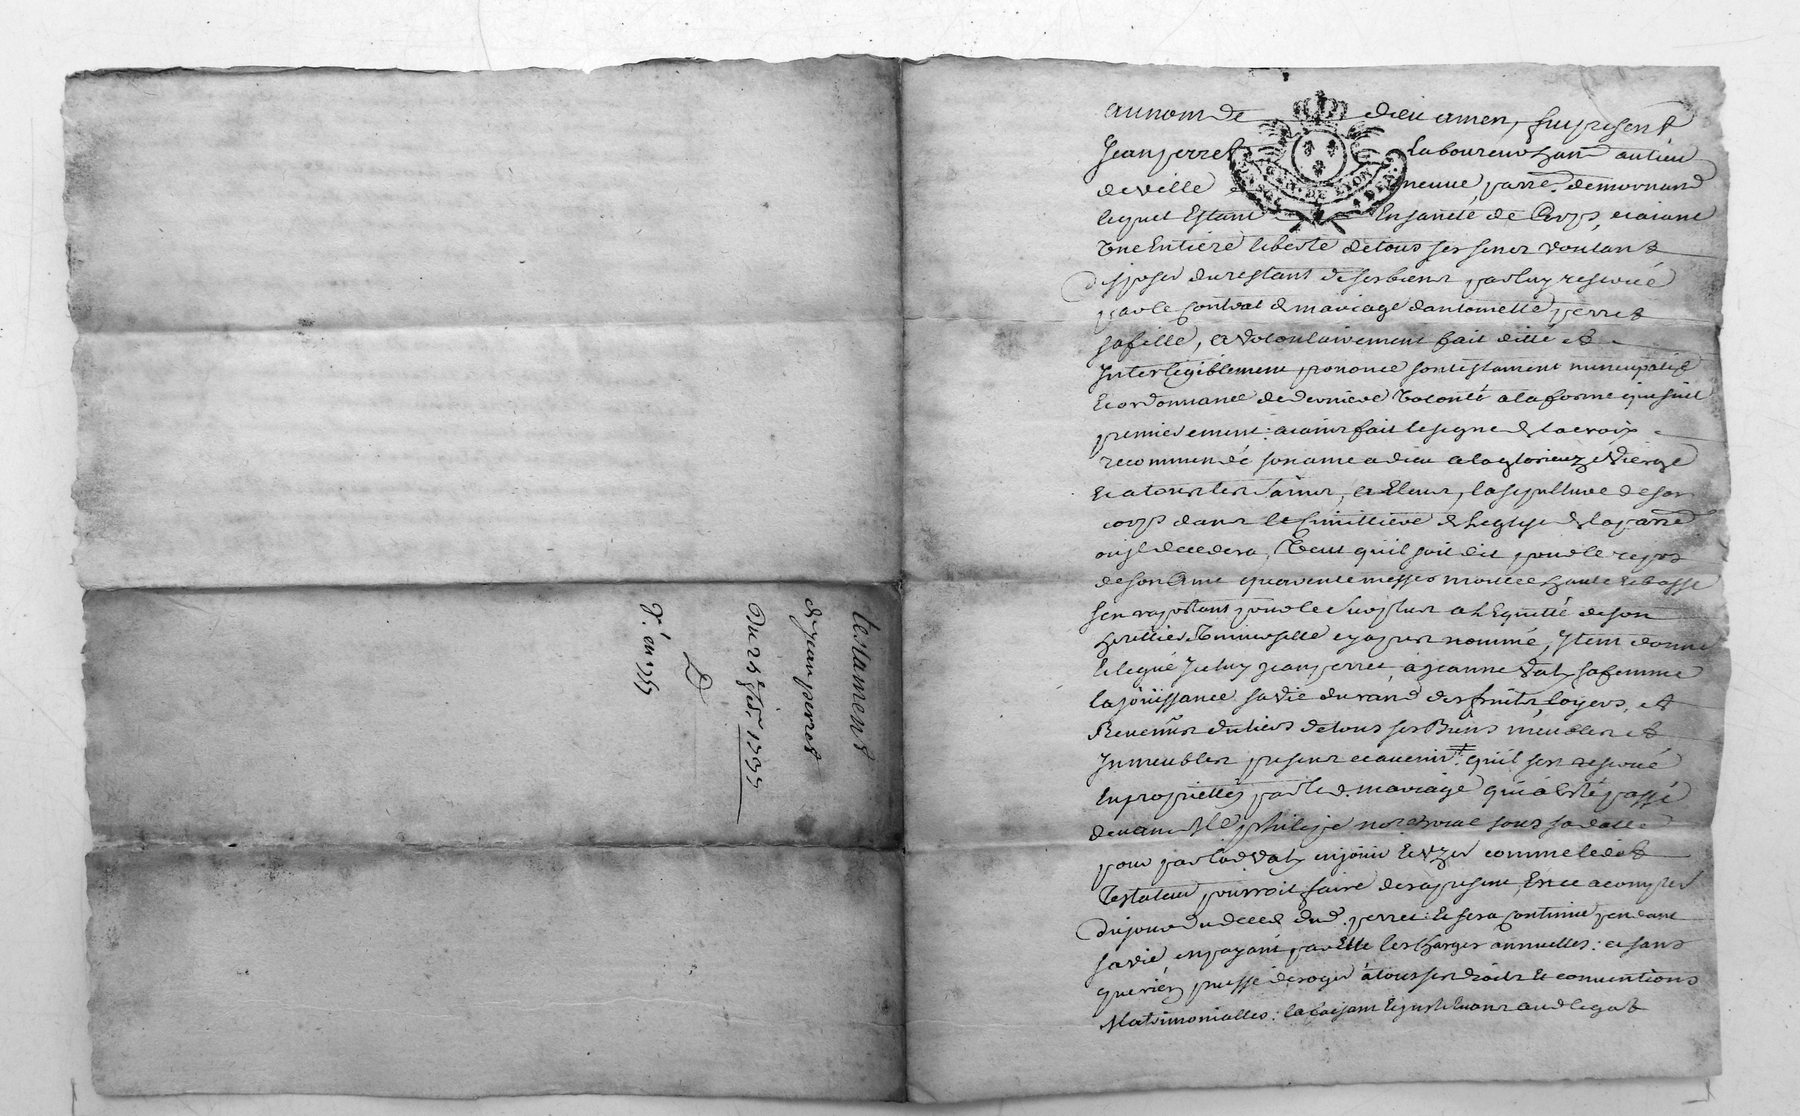 testament
de jean perret
Du 25e fed. 1735
au nom de dieu amen, fut present
Jean perret laboureur hant au lieu
de ville neuve parre. de mornand
lequel Estant En santé de Corps, et aiant
Une Entiere liberté de tous ses sens voulant
disposer du restant de ses biens par luy reservé
par le Contrat de mariage d'antoinette perret
sa fille, a volontairement fait ditté et
Intelegiblement prononcé son testament nuncupatif
Et ordonnance de derniere Volonté a la forme qui suit
premierement: aiant fait le signe de la croix
recommendé son ame a dieu a la glorieuze Vierge
Et a tous les Saints, a Eleut, la sepulture de son
corps dans le Cimittiere de l'eglize de la parre
ou jl decedera, Veut qu'il soit dit pour le repos
de son Ame quarente messes moitié haute et basse
s'en raportant pour le surplus a l'Equitté de son
heritiere Universelle cy apres nommé, Jtem donne
et legue Jceluy jean perret, à jeanne Val sa femme
la joüissance sa vie durand des fruits, loyers, et
Revenus du tiers de tous ses Biens meubles et
Jmmeubles presens et avenir qu'il s'est reservé
En proprietté par led. mariage qui a Esté passé
devant Me philipe not. royal sous sa datte
pour par lad Val en jouir Et Uzer comme ledit
Testateur pourroit faire des a present, Et ce a compter
du jour du deced dud. perret: Et sera Continué pendant
sa vie en payant par Elle les charges annuelles: et sans
que rien puisse deroger à tous ses droits Et conventions
Matrimonialles: la faisant Et jnstituant aud legat